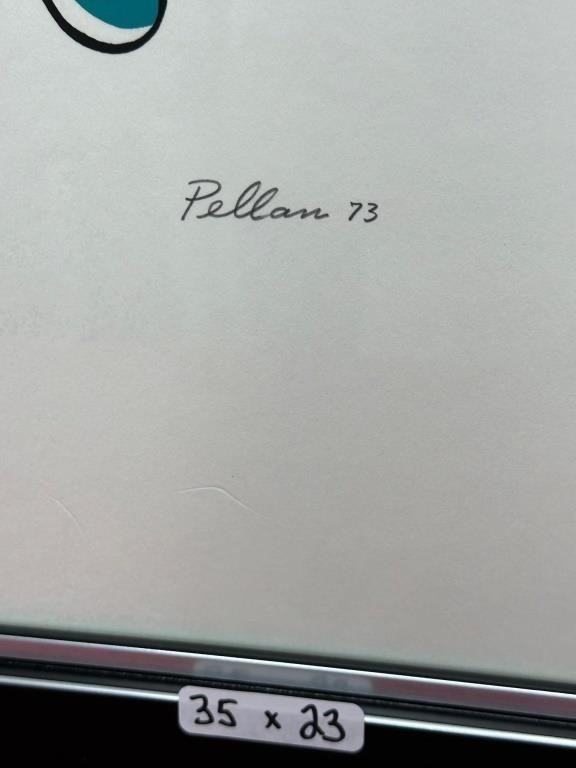 Pellan 73
35 x 23